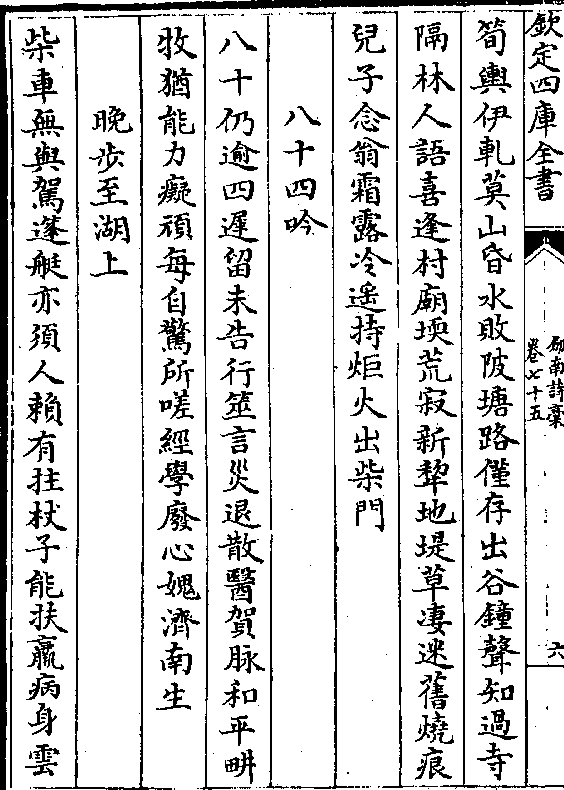 欽定四庫全書
劍南詩稾
卷七十五
六
筍輿伊軋莫山昏水敗陂塘路僅存出谷鐘聲知過寺
隔林人語喜逢村廟堧荒寂新犂地堤草凄迷舊燒痕
兒子念翁霜露冷遥持炬火出柴門
八十四吟
八十仍逾四遲留未告行筮言災退散醫賀脉和平畊
牧猶能力癡頑每自驚所嗟經學廢心媿濟南生
晚步至湖上
柴車無與駕蓬艇亦須人賴有拄杖子能扶羸病身雲